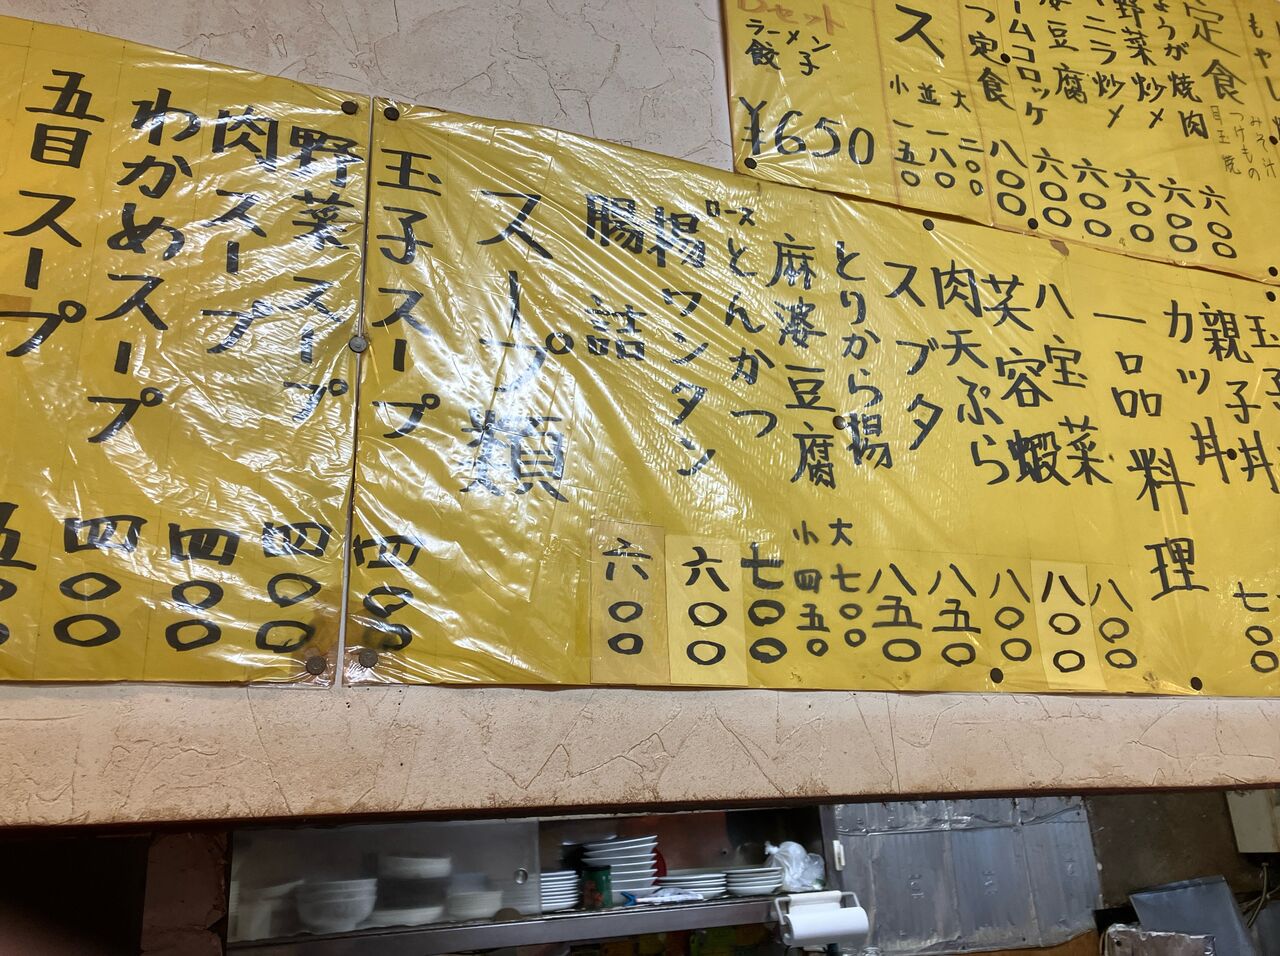 もやし
定食
みそ汁
つけもの
目玉焼
ょうが焼肉 六〇〇
野菜炒メ 六〇〇
ニラ炒メ 六〇〇
婆豆腐 六〇〇
ームコロッケ 六〇〇
つ定食 八〇〇
ス
大 二〇〇
並 一八〇
小 一五〇
Dセット
ラーメン
餃子
¥650
玉子丼
親子丼
カツ丼 七〇〇
一品料理
八宝菜 八〇〇
芙容蝦 八〇〇
肉天ぷら 八〇〇
スブタ 八五〇
とりから揚 八五〇
麻婆豆腐 大 七〇〇
小 四五〇
ロースとんかつ 七〇〇
揚ワンタン 六〇〇
腸詰 六〇〇
スープ類
玉子スープ 四〇〇
野菜スープ 四〇〇
肉スープ 四〇〇
わかめスープ 四〇〇
五目スープ 五〇〇